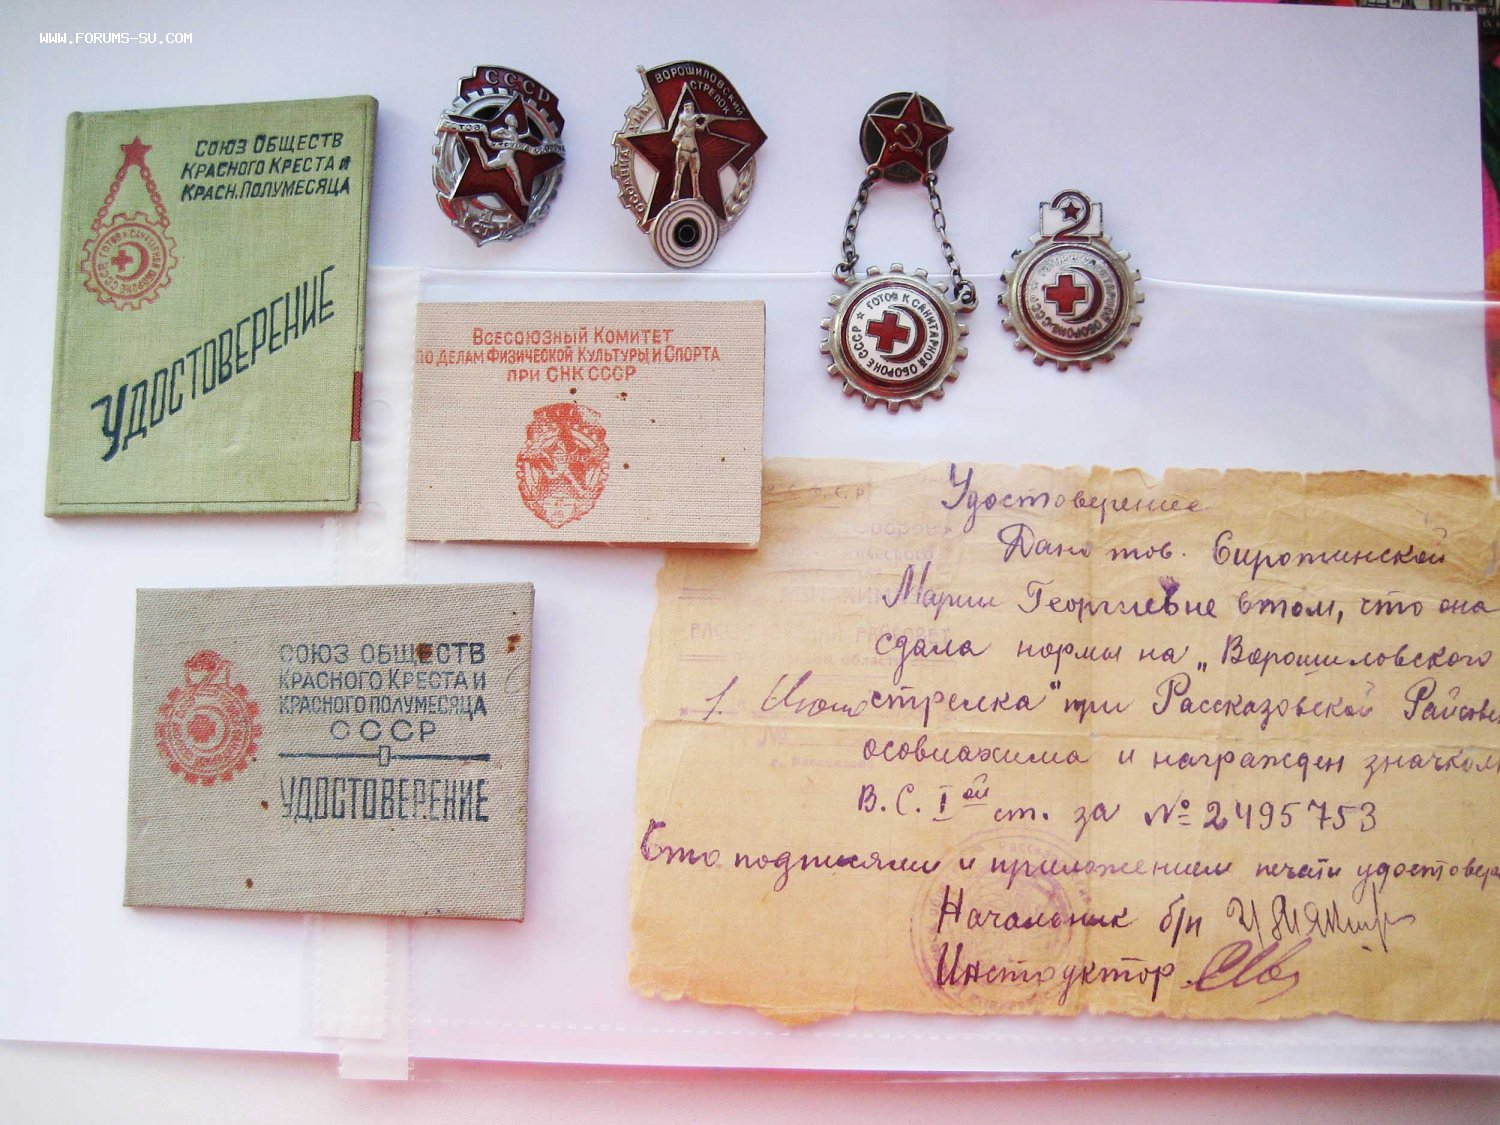 WWW.FORUMS-SU.COM
СОЮЗ ОБЩЕСТВ
КРАСНОГО КРЕСТА И
КРАСН. ПОЛУМЕСЯЦА
ГОТОВ К САНИТАРНОЙ ОБОРОНЕ СССР
УДОСТОВЕРЕНИЕ
СССР
ВОРОШИЛОВСКИЙ
СТРЕЛОК
ГОТОВ К САНИТАРНОЙ ОБОРОНЕ СССР
2
ВСЕСОЮЗНЫЙ КОМИТЕТ
ПО ДЕЛАМ ФИЗИЧЕСКОЙ КУЛЬТУРЫ И СПОРТА
ПРИ СНК СССР
СОЮЗ ОБЩЕСТВ
КРАСНОГО КРЕСТА И
КРАСНОГО ПОЛУМЕСЯЦА
СССР
УДОСТОВЕРЕНИЕ
2
Удостоверение
Дано тов. Сиротинской
Марии Георгиевне в том, что она
сдала нормы на „Ворошиловского
стрелка" при Рассказовской
осовиахима и награжден значком
В.С. I ой ст. за № 2495753
подписями и приложением печати
Начальник б/п
Инструктор